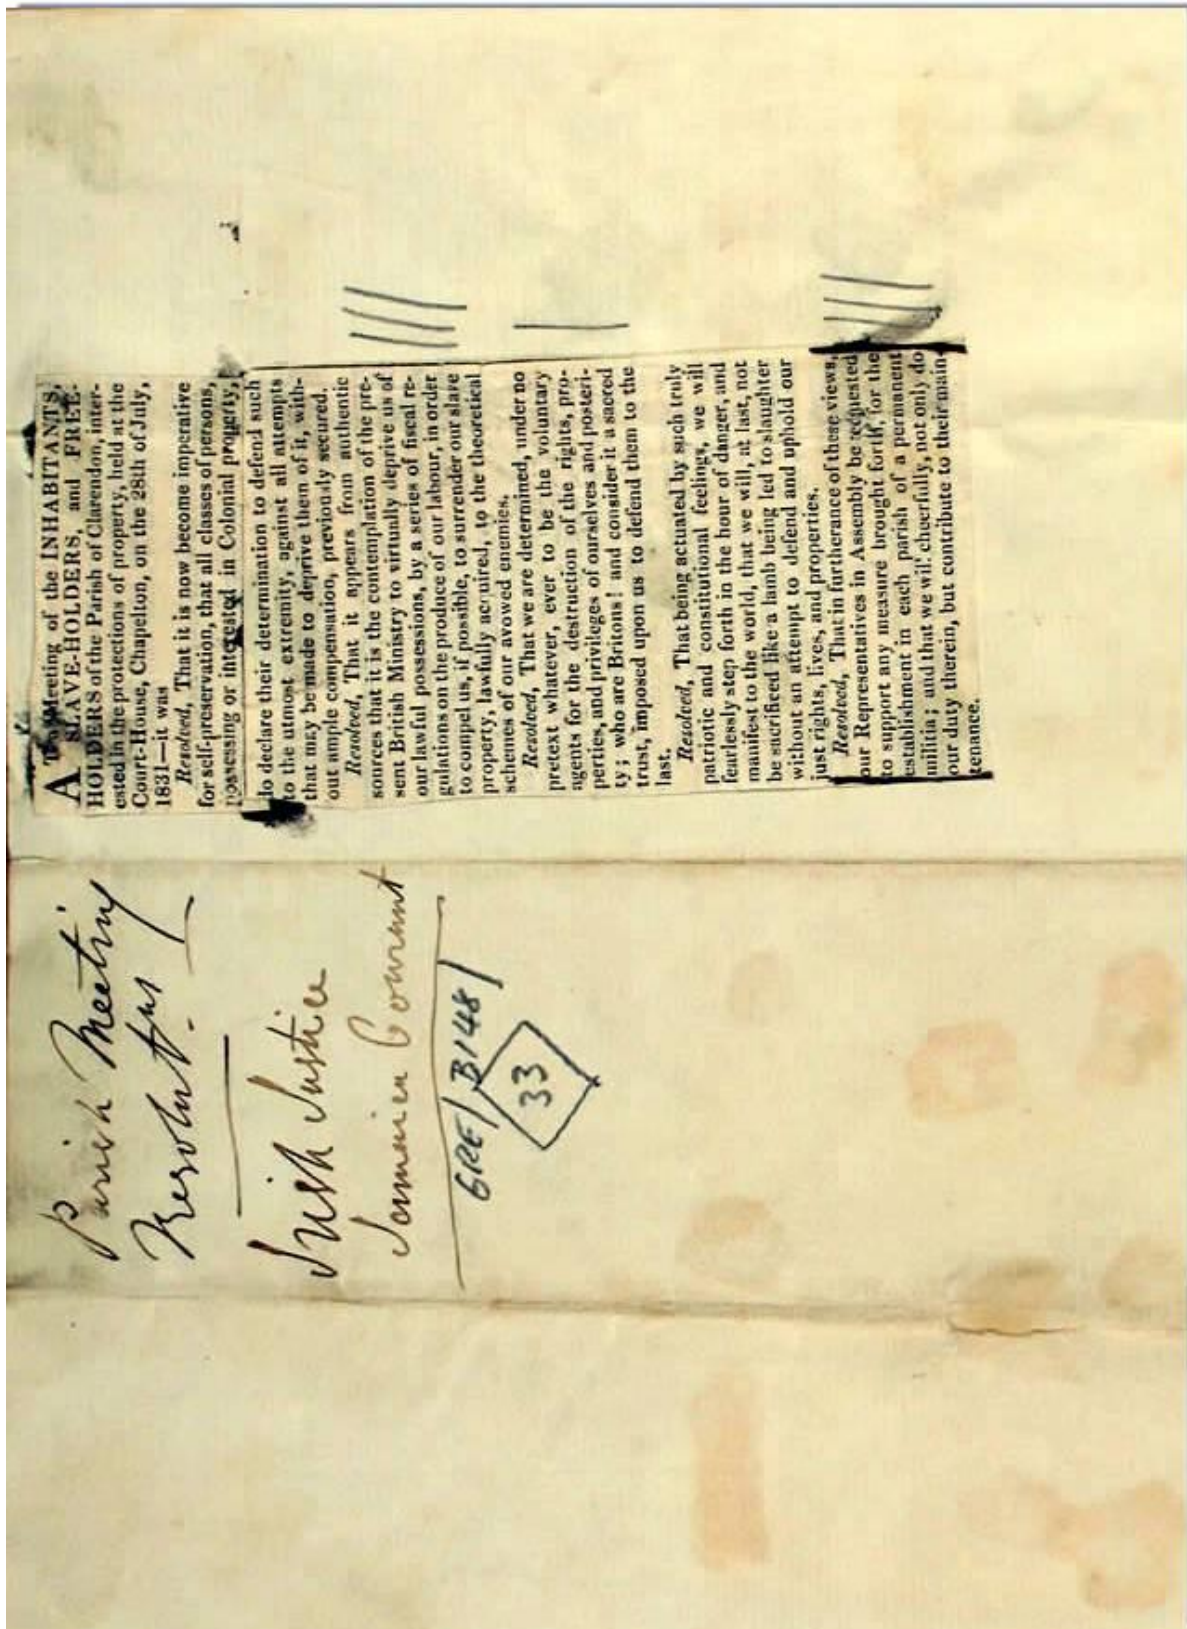 Parish Meeting
Resolutns
Irish Justice
Jamaica Courant
GRE/B148/
33
AT a Meeting of the INHABITANTS,
SLAVE-HOLDERS, and FREE-
HOLDERS of the Parish of Clarendon, inter-
ested in the protections of property, held at the
Court-House, Chapelton, on the 28th of July,
1831—it was
Resolved, That it is now become imperative
for self-preservation, that all classes of persons,
possessing or interested in Colonial property,
do declare their determination to defend such
to the utmost extremity, against all attempts
that may be made to deprive them of it, with-
out ample compensation, previously secured.
Resolved, That it appears from authentic
sources that it is the contemplation of the pre-
sent British Ministry to virtually deprive us of
our lawful possessions, by a series of fiscal re-
gulations on the produce of our labour, in order
to compel us, if possible, to surrender our slave
property, lawfully acquired, to the theoretical
schemes of our avowed enemies.
Resolved, That we are determined, under no
pretext whatever, ever to be the voluntary
agents for the destruction of the rights, pro-
perties, and privileges of ourselves and posteri-
ty; who are Britons! and consider it a sacred
trust, imposed upon us to defend them to the
last.
Resolved, That being actuated by such truly
patriotic and constitutional feelings, we will
fearlessly step forth in the hour of danger, and
manifest to the world, that we will, at last, not
be sacrificed like a lamb being led to slaughter
without an attempt to defend and uphold our
just rights, lives, and properties.
Resolved, That in furtherance of these views,
our Representatives in Assembly be requested
to support any measure brought forth, for the
establishment in each parish of a permanent
militia; and that we will cheerfully, not only do
our duty therein, but contribute to their main-
tenance.